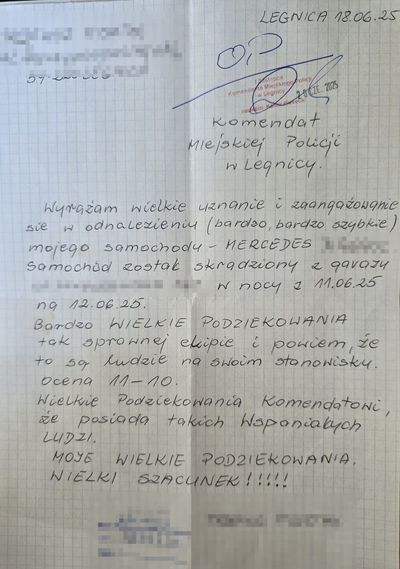 LEGNICA 18.06.25
59-220
OiP
Komendat
Komendanta Miejskiego Policji
w Legnicy
2025
Komendat
Miejskiej Policji
w Legnicy.
Wyrażam wielkie uznanie i zaangażowanie
się w odnalezieniu (bardzo, bardzo szybkie)
mojego samochodu - MERCEDES
Samochód został skradziony z garażu
w nocy z 11.06.25
na 12.06.25.
Bardzo WIELKIE PODZIĘKOWANIA
tak sprawnej ekipie i powiem, że
to są ludzie na swoim stanowisku.
Ocena 11-10.
Wielkie Podziękowania Komendatowi,
że posiada takich Wspaniałych
LUDZI.
MOJE WIELKIE PODZIĘKOWANIA.
WIELKI SZACUNEK!!!!!